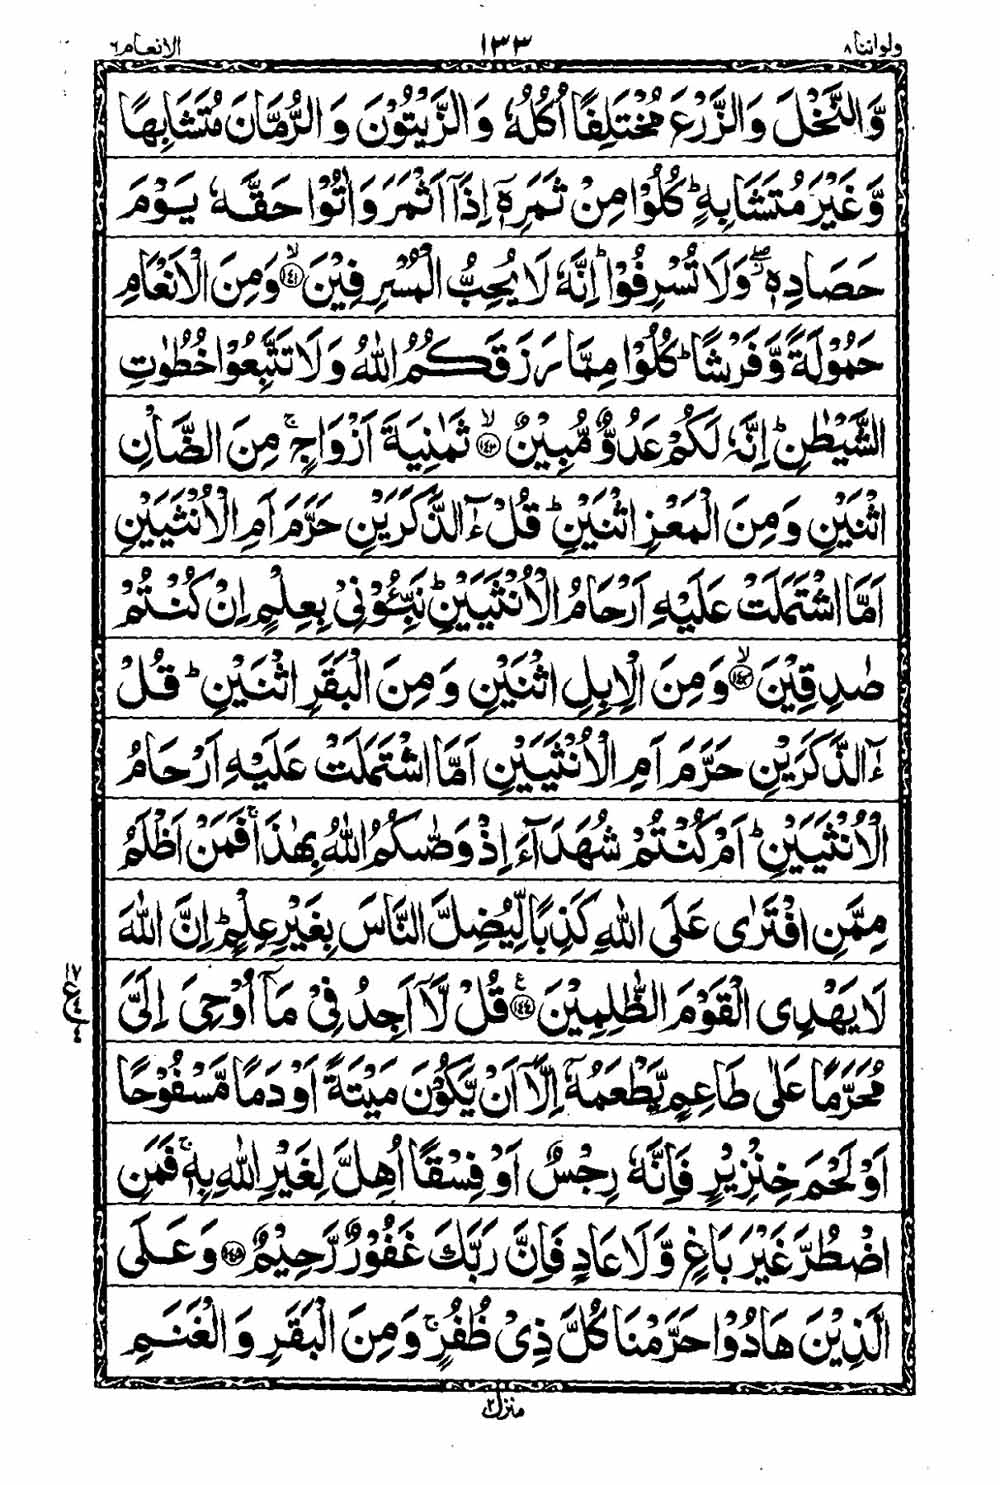 ولواننا ٨
١٣٣
الانعام ٦
وَّالنَّخْلَ وَالزَّرْعَ مُخْتَلِفًا اُكُلُهٗ وَالزَّيْتُوْنَ وَالرُّمَّانَ مُتَشَابِهًا
وَّغَيْرَ مُتَشَابِهٍ ؕ كُلُوْا مِنْ ثَمَرِهٖۤ اِذَاۤ اَثْمَرَ وَاٰتُوْا حَقَّهٗ يَوْمَ
حَصَادِهٖ ۖ وَلَا تُسْرِفُوْا ؕ اِنَّهٗ لَا يُحِبُّ الْمُسْرِفِيْنَ ۙ﴿١٤١﴾ وَمِنَ الْاَنْعَامِ
حَمُوْلَةً وَّفَرْشًا ؕ كُلُوْا مِمَّا رَزَقَكُمُ اللّٰهُ وَلَا تَتَّبِعُوْا خُطُوٰتِ
الشَّيْطٰنِ ؕ اِنَّهٗ لَكُمْ عَدُوٌّ مُّبِيْنٌ ۙ﴿١٤٢﴾ ثَمٰنِيَةَ اَزْوَاجٍ ۚ مِنَ الضَّاْنِ
اثْنَيْنِ وَمِنَ الْمَعْزِ اثْنَيْنِ ؕ قُلْ ءٰٓالذَّكَرَيْنِ حَرَّمَ اَمِ الْاُنْثَيَيْنِ
اَمَّا اشْتَمَلَتْ عَلَيْهِ اَرْحَامُ الْاُنْثَيَيْنِ ؕ نَبِّـُٔوْنِيْ بِعِلْمٍ اِنْ كُنْتُمْ
صٰدِقِيْنَ ۙ﴿١٤٣﴾ وَمِنَ الْاِبِلِ اثْنَيْنِ وَمِنَ الْبَقَرِ اثْنَيْنِ ؕ قُلْ
ءٰٓالذَّكَرَيْنِ حَرَّمَ اَمِ الْاُنْثَيَيْنِ اَمَّا اشْتَمَلَتْ عَلَيْهِ اَرْحَامُ
الْاُنْثَيَيْنِ ؕ اَمْ كُنْتُمْ شُهَدَآءَ اِذْ وَصّٰىكُمُ اللّٰهُ بِهٰذَا ۚ فَمَنْ اَظْلَمُ
مِمَّنِ افْتَرٰى عَلَى اللّٰهِ كَذِبًا لِّيُضِلَّ النَّاسَ بِغَيْرِ عِلْمٍ ؕ اِنَّ اللّٰهَ
لَا يَهْدِى الْقَوْمَ الظّٰلِمِيْنَ ﴿١٤٤﴾ۧ قُلْ لَّاۤ اَجِدُ فِيْ مَاۤ اُوْحِىَ اِلَىَّ
مُحَرَّمًا عَلٰى طَاعِمٍ يَّطْعَمُهٗۤ اِلَّاۤ اَنْ يَّكُوْنَ مَيْتَةً اَوْ دَمًا مَّسْفُوْحًا
اَوْ لَحْمَ خِنْزِيْرٍ فَاِنَّهٗ رِجْسٌ اَوْ فِسْقًا اُهِلَّ لِغَيْرِ اللّٰهِ بِهٖ ۚ فَمَنِ
اضْطُرَّ غَيْرَ بَاغٍ وَّلَا عَادٍ فَاِنَّ رَبَّكَ غَفُوْرٌ رَّحِيْمٌ ﴿١٤٥﴾ وَعَلَى
الَّذِيْنَ هَادُوْا حَرَّمْنَا كُلَّ ذِىْ ظُفُرٍ ۚ وَمِنَ الْبَقَرِ وَالْغَنَمِ
منزل ٢